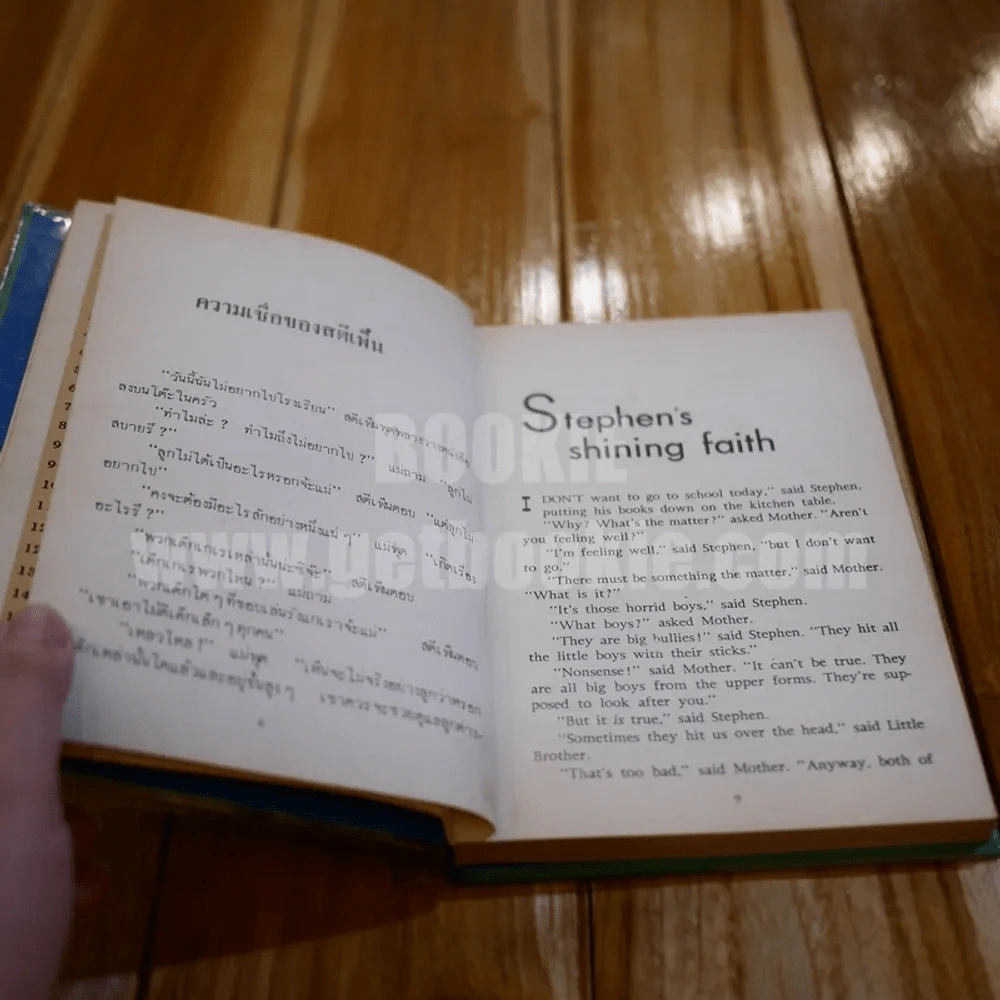 ความเชื่อของสตีเฟ็น
"วันนี้ฉันไม่อยากไปโรงเรียน" สตีเฟ็นพูดพลางวางหนังสือ
ลงบนโต๊ะในครัว
"ทำไมล่ะ ? ทำไมถึงไม่อยากไป ?" แม่ถาม "ลูกไม่
สบายรึ ?"
"ลูกไม่ได้เป็นอะไรหรอกจ้ะแม่" สตีเฟ็นตอบ "แต่ลูกไม่
อยากไป"
"คงจะต้องมีอะไรสักอย่างหนึ่งแน่ ๆ" แม่พูด "เกิดเรื่อง
อะไรรึ ?"
"พวกเด็กเกเรเหล่านั้นน่ะซิจ๊ะ" สตีเฟ็นตอบ
"เด็กเกเรพวกไหน ?" แม่ถาม
"พวกเด็กโต ๆ ที่ชอบเล่นรังแกเราจ้ะแม่" สตีเฟ็นตอบ
"เขาเอาไม้ตีเด็กเล็ก ๆ ทุกคน"
"เหลวไหล !" แม่พูด "เห็นจะไม่จริงอย่างลูกว่าหรอก
เด็กเหล่านั้นโตแล้วและอยู่ชั้นสูง ๆ เขาควรจะช่วยดูแลลูก
8
5
6
7
8
9
9
10
11
12
12
13
14
Stephen's
shining faith
I DON'T want to go to school today," said Stephen,
putting his books down on the kitchen table.
"Why? What's the matter?" asked Mother. "Aren't
you feeling well?"
"I'm feeling well," said Stephen, "but I don't want
to go."
"There must be something the matter," said Mother.
"What is it?"
"It's those horrid boys," said Stephen.
"What boys?" asked Mother.
"They are big bullies!" said Stephen. "They hit all
the little boys with their sticks."
"Nonsense!" said Mother. "It can't be true. They
are all big boys from the upper forms. They're sup-
posed to look after you."
"But it is true," said Stephen.
"Sometimes they hit us over the head," said Little
Brother.
"That's too bad," said Mother. "Anyway, both of
9
BOOKIE
www.getbookie.com